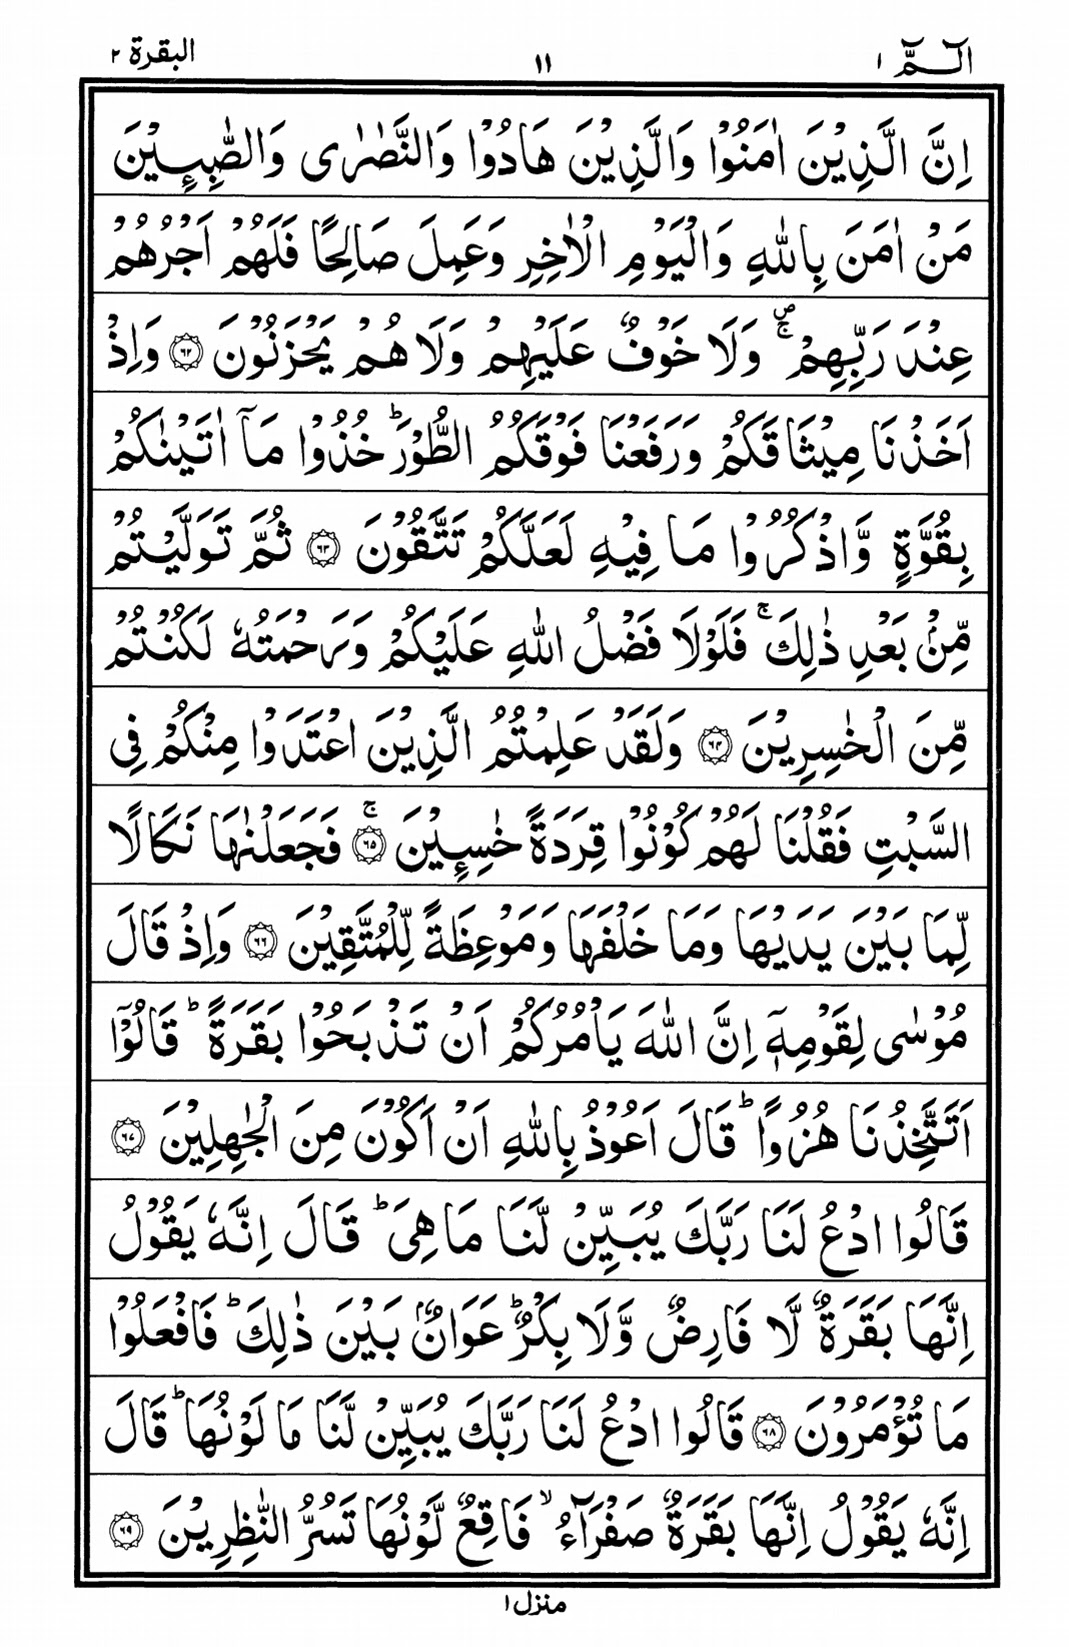 الٓـمّٓ ۱
۱۱
البقرة ۲
اِنَّ الَّذِیْنَ اٰمَنُوْا وَالَّذِیْنَ هَادُوْا وَالنَّصٰرٰی وَالصّٰبِـِٕیْنَ
مَنْ اٰمَنَ بِاللّٰهِ وَالْیَوْمِ الْاٰخِرِ وَعَمِلَ صَالِحًا فَلَهُمْ اَجْرُهُمْ
عِنْدَ رَبِّهِمْ ۪ۚ وَلَا خَوْفٌ عَلَیْهِمْ وَلَا هُمْ یَحْزَنُوْنَ ۝۶۲ وَاِذْ
اَخَذْنَا مِیْثَاقَكُمْ وَرَفَعْنَا فَوْقَكُمُ الطُّوْرَ ؕ خُذُوْا مَاۤ اٰتَیْنٰكُمْ
بِقُوَّةٍ وَّاذْكُرُوْا مَا فِیْهِ لَعَلَّكُمْ تَتَّقُوْنَ ۝۶۳ ثُمَّ تَوَلَّیْتُمْ
مِّنْۢ بَعْدِ ذٰلِكَ ۚ فَلَوْلَا فَضْلُ اللّٰهِ عَلَیْكُمْ وَرَحْمَتُهٗ لَكُنْتُمْ
مِّنَ الْخٰسِرِیْنَ ۝۶۴ وَلَقَدْ عَلِمْتُمُ الَّذِیْنَ اعْتَدَوْا مِنْكُمْ فِی
السَّبْتِ فَقُلْنَا لَهُمْ كُوْنُوْا قِرَدَةً خٰسِـِٕیْنَ ۝۶۵ۚ فَجَعَلْنٰهَا نَكَالًا
لِّمَا بَیْنَ یَدَیْهَا وَمَا خَلْفَهَا وَمَوْعِظَةً لِّلْمُتَّقِیْنَ ۝۶۶ وَاِذْ قَالَ
مُوْسٰی لِقَوْمِهٖۤ اِنَّ اللّٰهَ یَاْمُرُكُمْ اَنْ تَذْبَحُوْا بَقَرَةً ؕ قَالُوْۤا
اَتَتَّخِذُنَا هُزُوًا ؕ قَالَ اَعُوْذُ بِاللّٰهِ اَنْ اَكُوْنَ مِنَ الْجٰهِلِیْنَ ۝۶۷
قَالُوا ادْعُ لَنَا رَبَّكَ یُبَیِّنْ لَّنَا مَا هِیَ ؕ قَالَ اِنَّهٗ یَقُوْلُ
اِنَّهَا بَقَرَةٌ لَّا فَارِضٌ وَّلَا بِكْرٌ ؕ عَوَانٌۢ بَیْنَ ذٰلِكَ ؕ فَافْعَلُوْا
مَا تُؤْمَرُوْنَ ۝۶۸ قَالُوا ادْعُ لَنَا رَبَّكَ یُبَیِّنْ لَّنَا مَا لَوْنُهَا ؕ قَالَ
اِنَّهٗ یَقُوْلُ اِنَّهَا بَقَرَةٌ صَفْرَآءُ ۙ فَاقِعٌ لَّوْنُهَا تَسُرُّ النّٰظِرِیْنَ ۝۶۹
منزل ۱